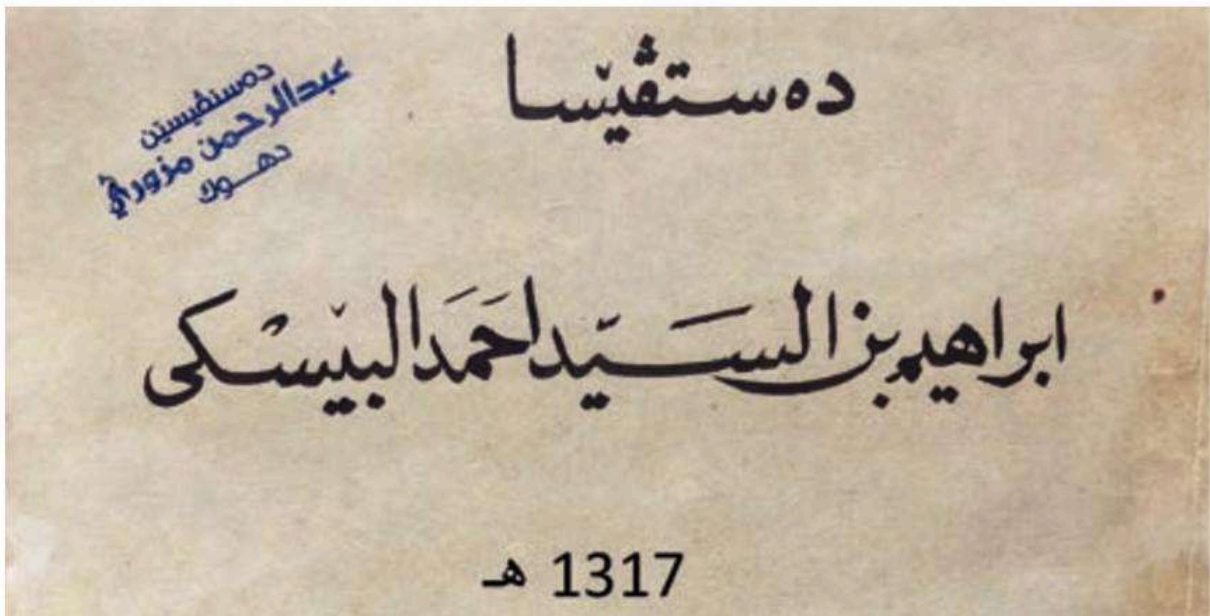 دەستڤێسا
دەستڤیسێن
عبدالرحمن مزوري
دهــوك
ابراهيم بن السَيّد احمَد البيسْكى
1317 هـ